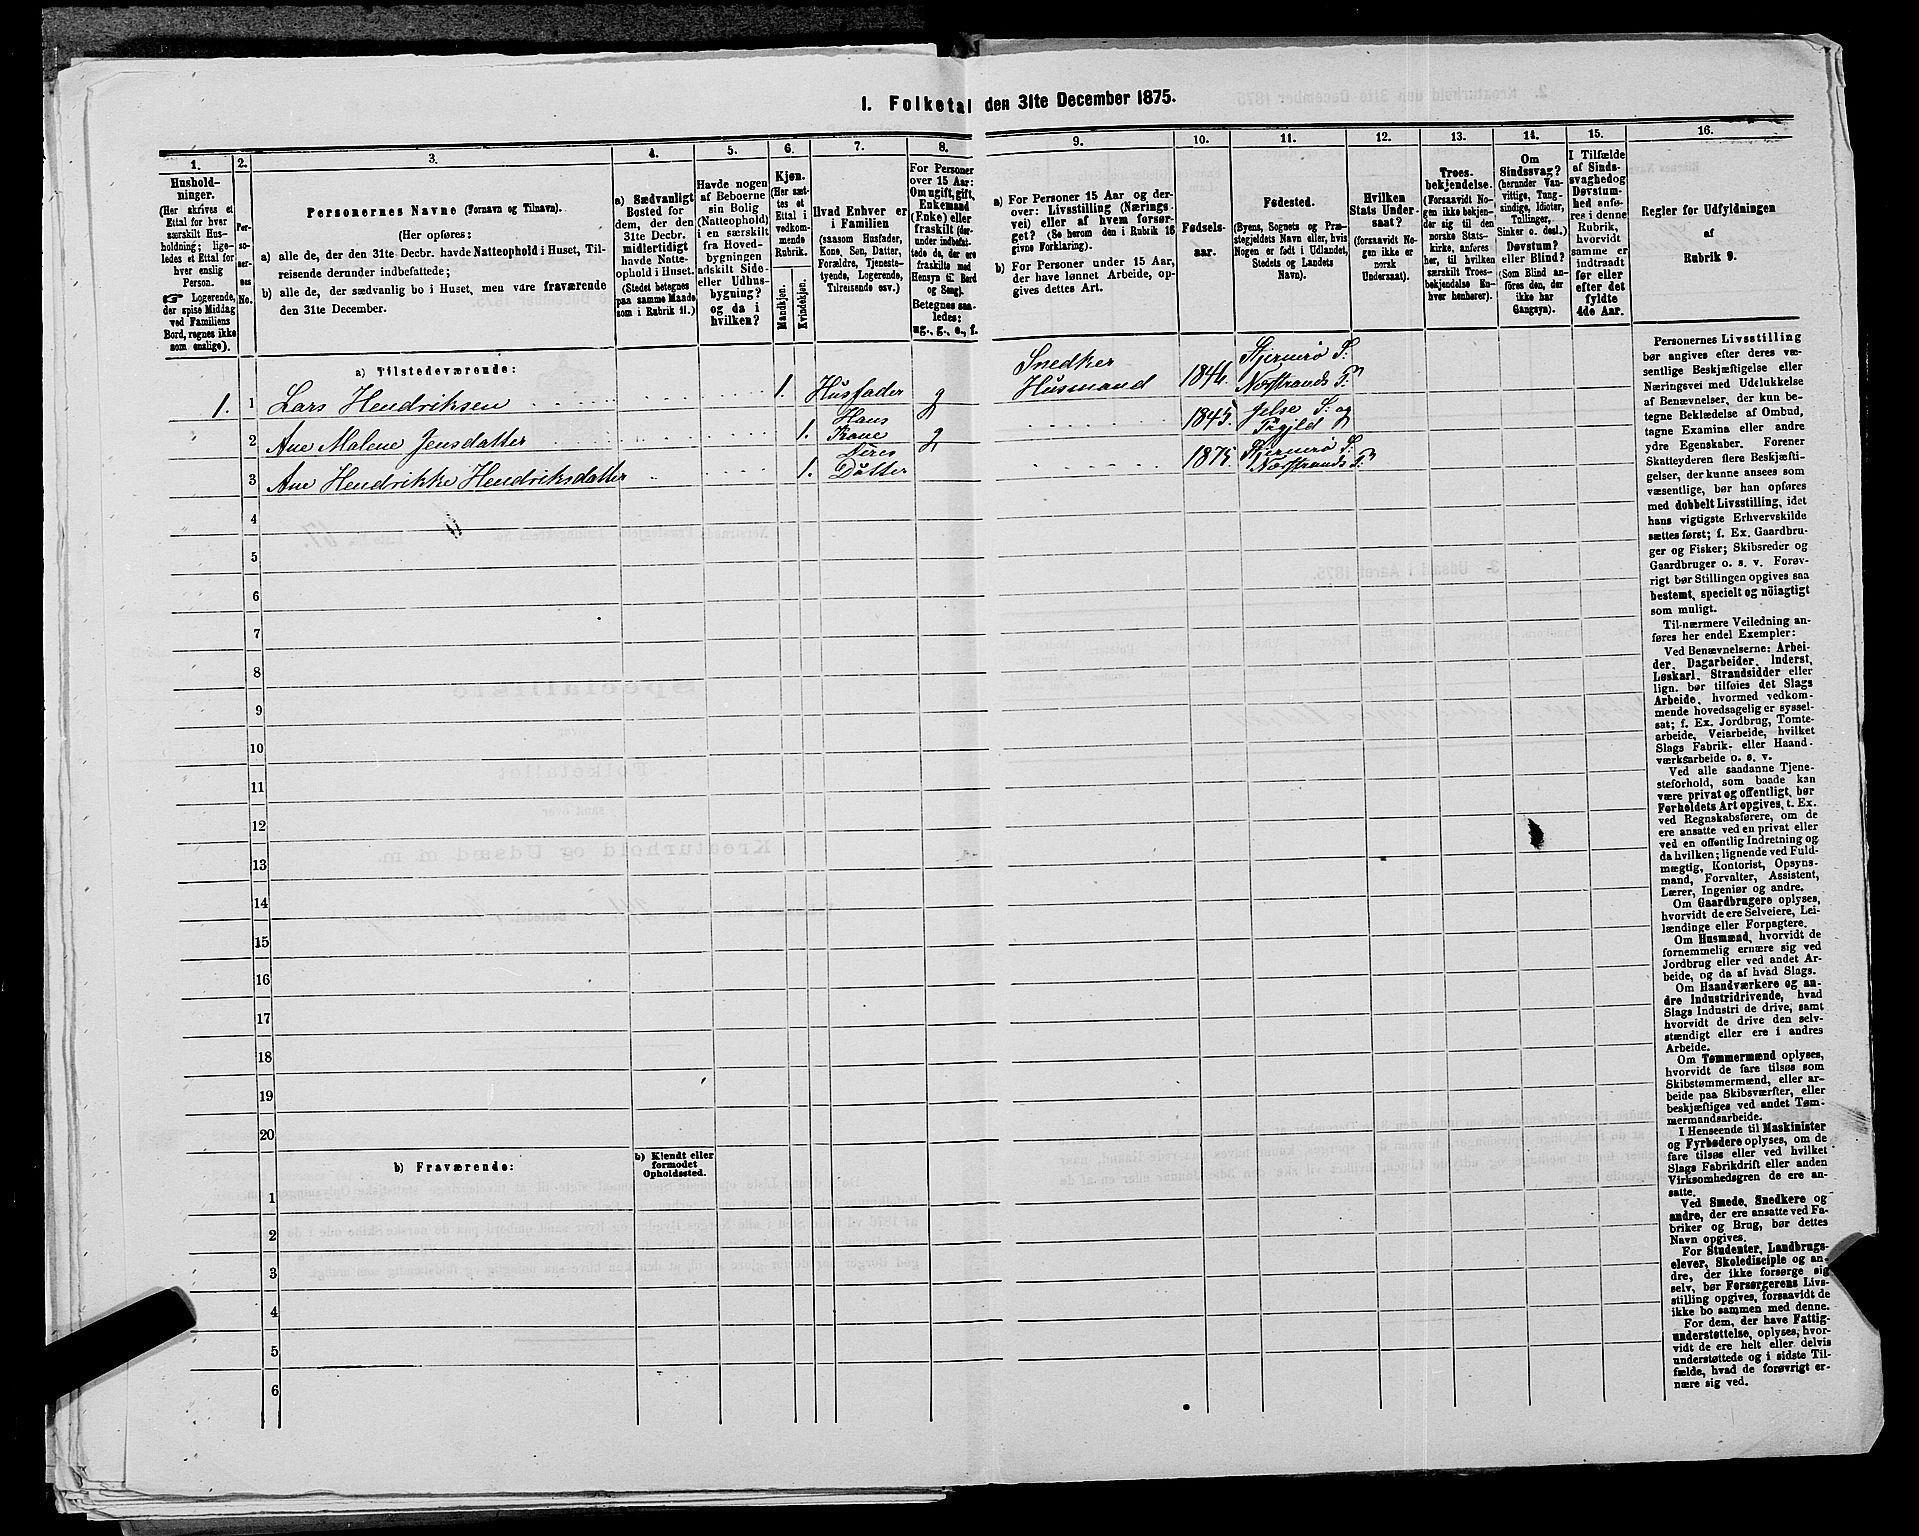 1. Folketal den 31te December 1875.
1. 2. 3. 4. 5. 6. 7. 8. 9. 10. 11. 12. 13. 14. 15. 16.
Hushold-
ninger.
(Her skrives et
Ettal for hver
særskilt Hus-
holdning; lige-
ledes et Ettal for
hver enslig
Person.
☞ Logerende,
der spise Middag
ved Familiens
Bord, regnes ikke
som enslige).
Per-
so-
ner-
nes
No.
Personernes Navne (Fornavn og Tilnavn).
(Her opføres:
a) alle de, der den 31te Decbr. havde Natteophold i Huset, Til-
reisende derunder indbefattede;
b) alle de, der sædvanlig bo i Huset, men vare fraværende
den 31te December.
a) Sædvanligt
Bosted for
dem, der den
31te Decbr.
midlertidigt
havde Natte-
ophold i Huset.
(Stedet betegnes
paa samme Maade
som i Rubrik 11.)
Havde nogen
af Beboerne
sin Bolig
(Natteophold)
i en særskilt
fra Hoved-
bygningen
adskilt Side-
eller Udhus-
bygning?
og da i
hvilken?
Kjøn.
(Her sæt-
tes et
Ettal i
vedkom-
mende
Rubrik.
Mandkjøn.
Kvindekjøn.
Hvad Enhver er
i Familien
(saasom Husfader,
Kone, Søn, Datter,
Forældre, Tjeneste-
tyende, Logerende,
Tilreisende osv.)
For Personer
over 15 Aar:
Om ugift, gift,
Enkemand
(Enke) eller
fraskilt (der-
under indbefat-
tede da, der ere
fraskilte med
Hensyn til Bord
og Seng).
Betegnes saa-
ledes:
ug., g., e., f.
a) For Personer 15 Aar og der-
over: Livsstilling (Nærings-
vei) eller af hvem forsør-
get? (Se herom den i Rubrik 16
givne Forklaring).
b) For Personer under 15 Aar,
der have lønnet Arbeide, op-
gives dettes Art.
Fødsels-
aar.
Fødested.
(Byens, Sognets og Præ-
stegjeldets Navn eller, hvis
Nogen er født i Udlandet,
Stedets og Landets
Navn).
Hvilken
Stats Under-
saat?
(forsaavidt No-
gen ikke er
norsk
Undersaat).
Troes-
bekjendelse.
(Forsaavidt No-
gen ikke bekjen-
der sig til den
norske Stats-
kirke, anføres
her, til hvilken
særskilt Troes-
bekjendelse En-
hver henhører).
Om
Sindssvag?
(herunder Van-
vittige, Tung-
sindige, Idioter,
Tullinger,
Sinker o. desl.)
Døvstum?
eller Blind?
(Som Blind an-
føres den, der
ikke har
Gangsyn).
I Tilfælde
af Sinds-
svaghed og
Døvstum-
hed anfø-
res i denne
Rubrik,
hvorvidt
samme er
indtraadt
før eller
efter det
fyldte
4de Aar.
Regler for Udfyldningen
af
Rubrik 9.
a) Tilstedeværende:
1. 1 Lars Hendriksen 1. Husfader g Snedker Husmand 1844. Stjernerø S: Nærstrands P.
2 Ane Malene Jensdatter 1. Hans Kone g 1845. Jelse S: og Pgjld
3 Ane Hendrikke Hendriksdatter 1. Deres Datter 1875. Stjernerø S. Nærstrands P.
4
5
6
7
8
9
10
11
12
13
14
15
16
17
18
19
20
b) Fraværende:
b) Kjendt eller
formodet
Opholdssted.
1
2
3
4
5
6
Personernes Livsstilling
bør angives efter deres væ-
sentlige Beskjæftigelse eller
Næringsvei med Udelukkelse
af Benævnelser, der kun be-
tegne Beklædelse af Ombud,
tagne Examina eller andre
ydre Egenskaber. Forener
Skatteyderen flere Beskjæfti-
gelser, der kunne ansees som
væsentlige, bør han opføres
med dobbelt Livsstilling, idet
hans vigtigste Erhvervskilde
sættes først; f. Ex. Gaardbru-
ger og Fisker; Skibsreder og
Gaardbruger o. s. v. Forøv-
rigt bør Stillingen opgives saa
bestemt, specielt og nöiagtigt
som muligt.
Til nærmere Veiledning an-
føres her endel Exempler:
Ved Benævnelserne: Arbei-
der, Dagarbeider, Inderst,
Løskarl, Strandsidder eller
lign. bør tilføies det Slags
Arbeide, hvormed vedkom-
mende hovedsagelig er syssel-
sat; f. Ex. Jordbrug, Tomte-
arbeide, Veiarbeide, hvilket
Slags Fabrik- eller Haand-
værksarbeide o. s. v.
Ved alle saadanne Tjene-
steforhold, som baade kan
være privat og offentligt, bør
Forholdets Art opgives, t. Ex.
ved Regnskabsførere, om de
ere ansatte ved en privat eller
ved en offentlig Indretning og
da hvilken; lignende ved Fuld-
mægtig, Kontorist, Opsyns-
mand, Forvalter, Assistent,
Lærer, Ingeniør og andre.
Om Gaardbrugere oplyses,
hvorvidt de ere Selveiere, Lei-
lændinge eller Forpagtere.
Om Husmænd, hvorvidt de
fornemmelig ernære sig ved
Jordbrug eller ved andet Ar-
beide, og da af hvad Slags.
Om Haandværkere og an-
dre Industridrivende, hvad
Slags Industri de drive, samt
hvorvidt de drive den selv-
stændigt eller ere i andres
Arbeide.
Om Tømmermænd oplyses,
hvorvidt de fare tilsøs som
Skibstømmermænd, eller ar-
beide paa Skibsværfter, eller
beskjæftiges ved andet Tøm-
mermandsarbeide.
I Henseende til Maskinister
og Fyrbødere oplyses, om de
fare tilsøs eller ved hvilket
Slags Fabrikdrift eller anden
Virksomhedsgren de ere an-
satte.
Ved Smede, Snedkere og
andre, der ere ansatte ved Fa-
briker og Brug, bør dettes
Navn opgives.
For Studenter, Landbrugs-
elever, Skoledisciple og an-
dre, der ikke forsørge sig
selv, bør Forsørgerens Livs-
stilling opgives, forsaavidt de
ikke bo sammen med denne.
For dem, der have Fattig-
understøttelse, oplyses, hvor-
vidt de ere helt eller delvis
understøttede og i sidste Til-
fælde, hvad de forøvrigt er-
nære sig ved.